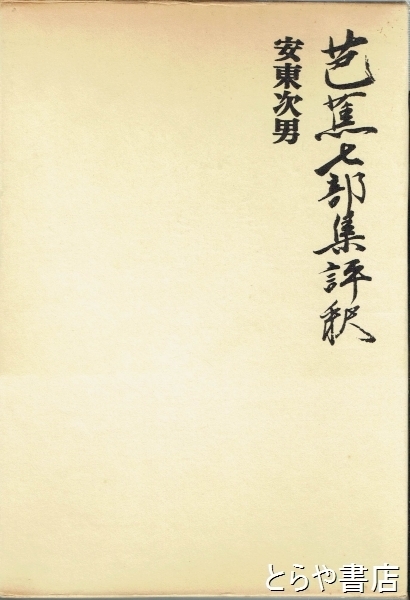 芭蕉七部集評釈
安東次男
とらや書店